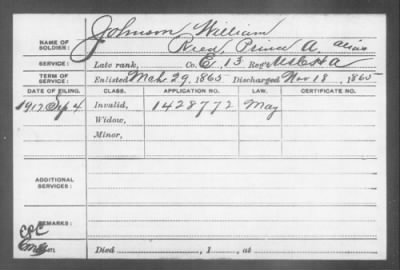 Johnson, William
NAME OF SOLDIER: Reed, Prince A. alias
SERVICE: Late rank, Co. E, 13 Reg't US C H A
TERM OF SERVICE: Enlisted Mch 29, 1865 Discharged Nov 18, 1865
DATE OF FILING. CLASS. APPLICATION NO. LAW. CERTIFICATE NO.
1912 Sep 4 Invalid, 1428772 May
Widow,
Minor,
ADDITIONAL SERVICES:
REMARKS:
Died , 1 , at